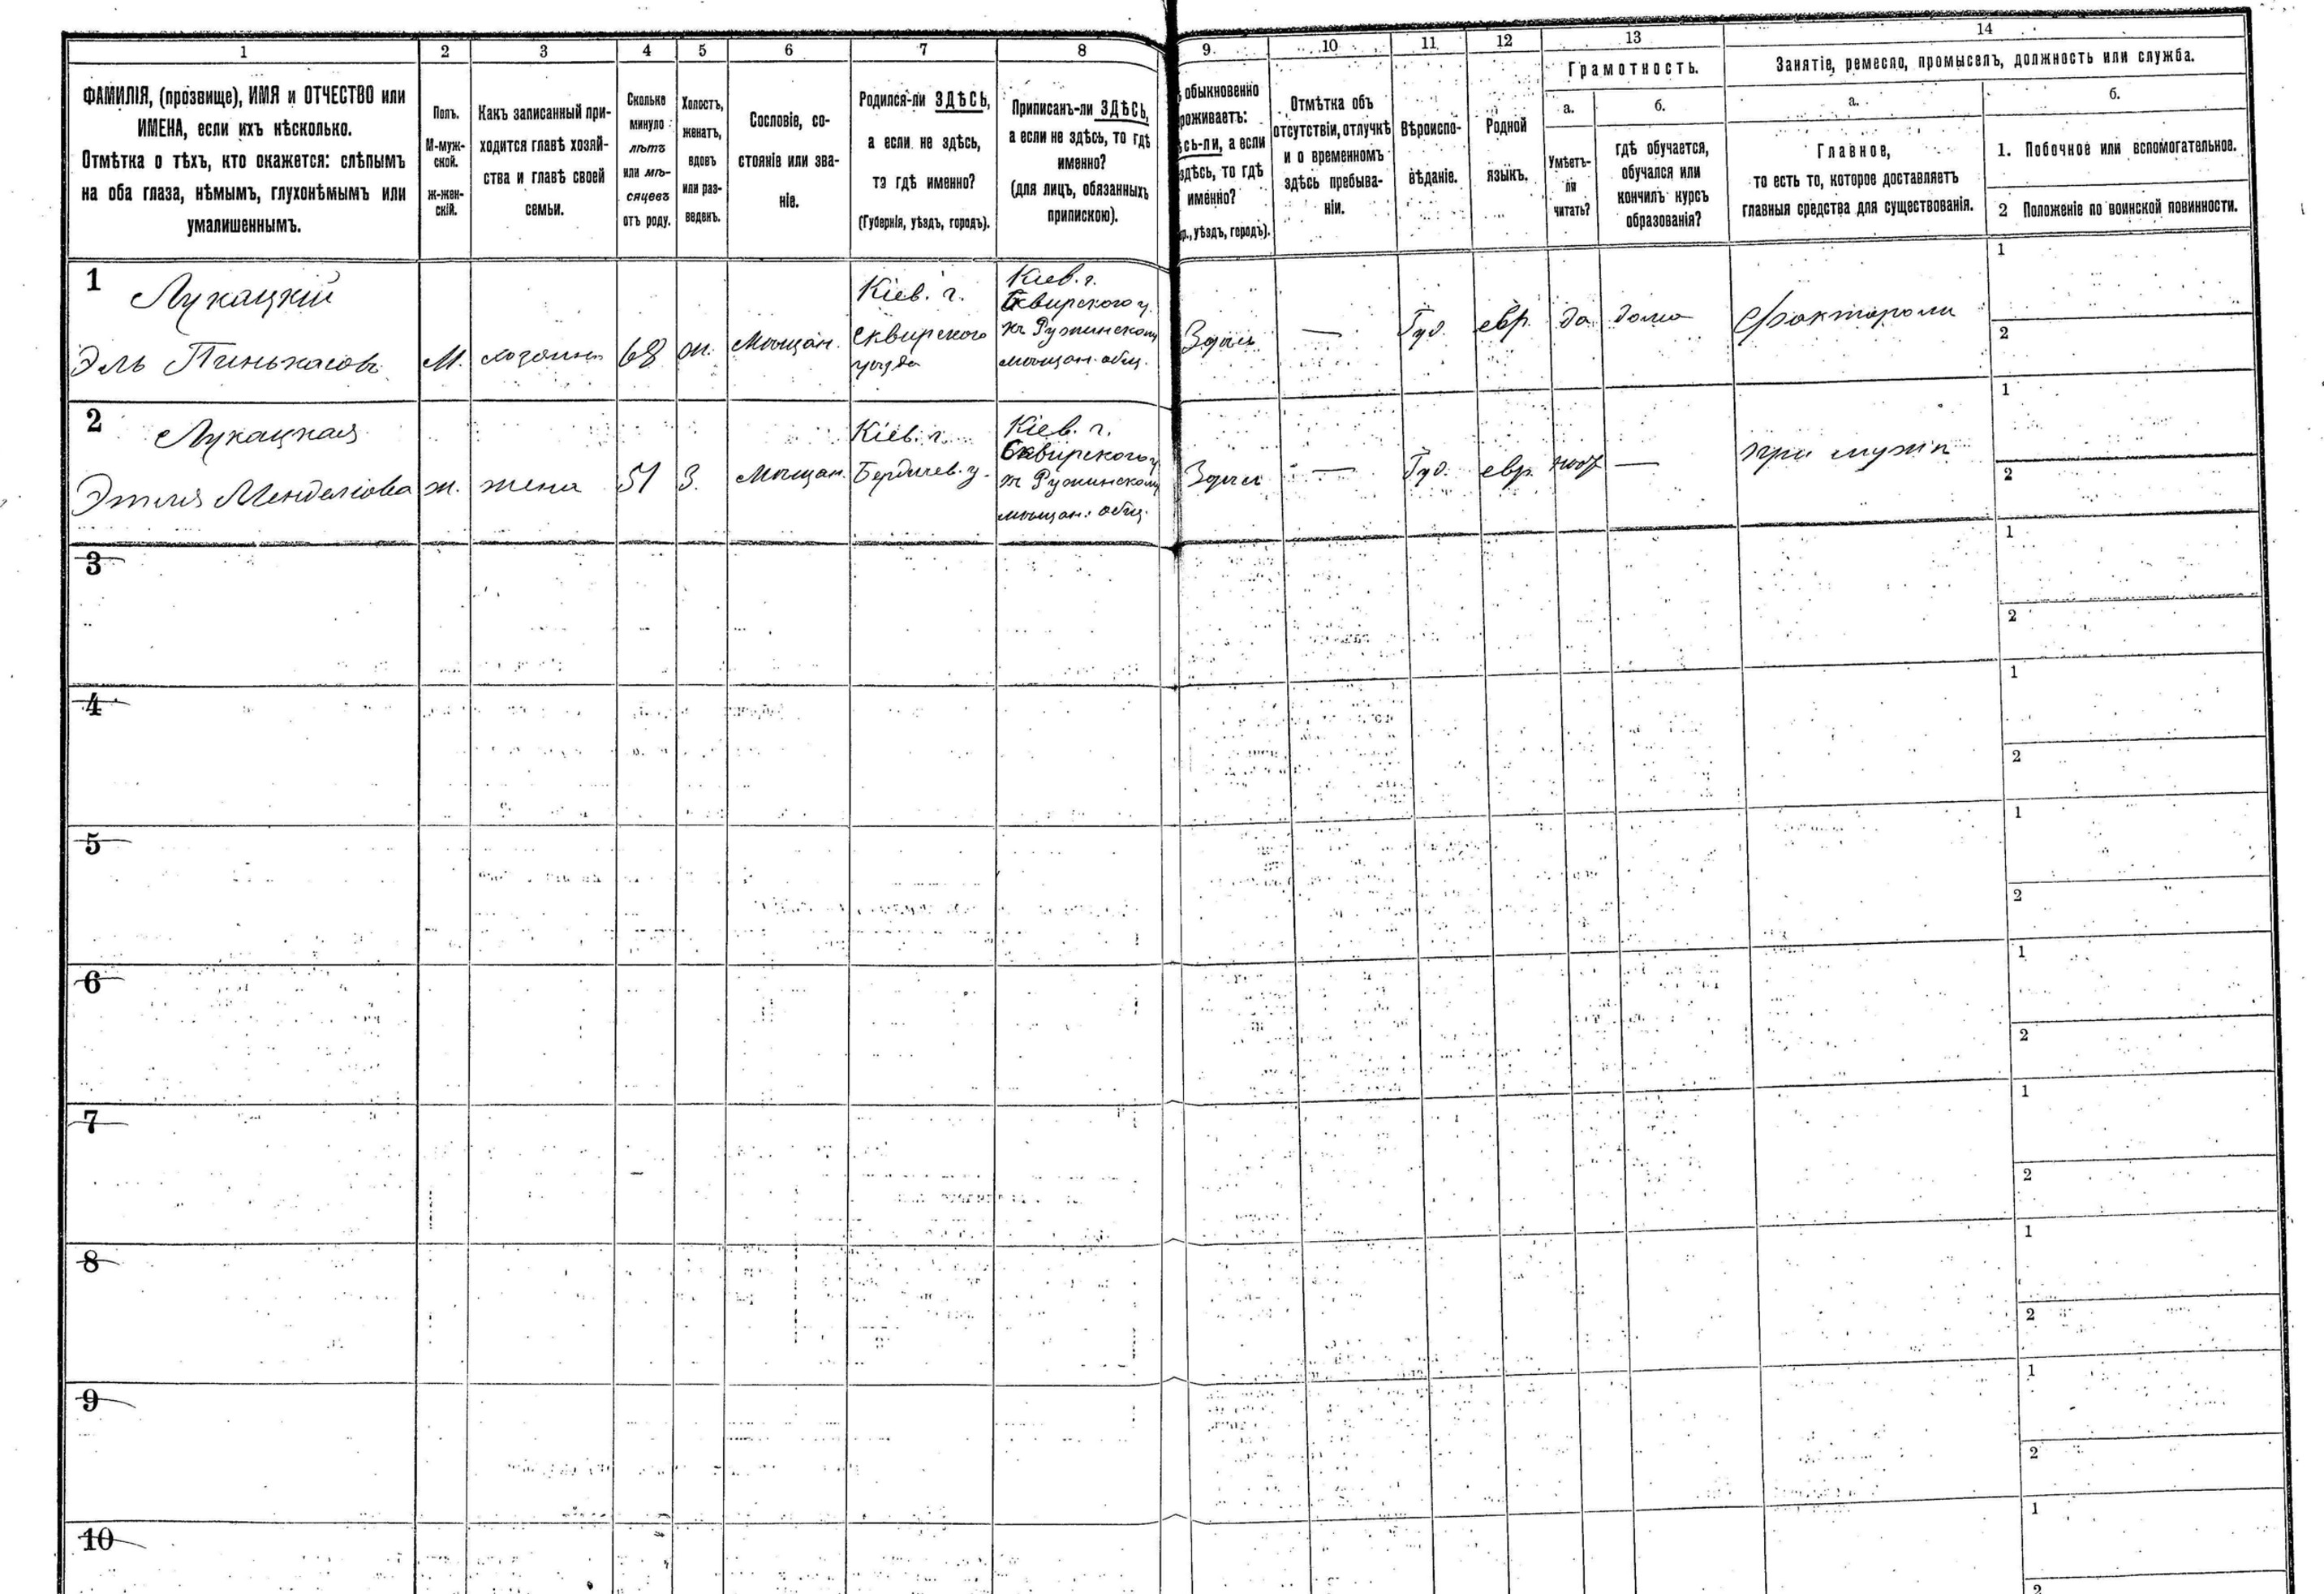 1
2
3
4
5
6
7
8
9
10
11
12
13
14
ФАМИЛІЯ, (прозвище), ИМЯ и ОТЧЕСТВО или
ИМЕНА, если ихъ нѣсколько.
Отмѣтка о тѣхъ, кто окажется: слѣпымъ
на оба глаза, нѣмымъ, глухонѣмымъ или
умалишеннымъ.
Полъ.
М-муж-
ской.
Ж-жен-
скій.
Какъ записанный при-
ходится главѣ хозяй-
ства и главѣ своей
семьи.
Сколько
минуло
лѣтъ
или мѣ-
сяцевъ
отъ роду.
Холостъ,
женатъ,
вдовъ
или раз-
веденъ.
Сословіе, со-
стояніе или зва-
ніе.
Родился-ли ЗДѢСЬ,
а если не здѣсь,
то гдѣ именно?
(Губернія, уѣздъ, городъ).
Приписанъ-ли ЗДѢСЬ,
а если не здѣсь, то гдѣ
именно?
(для лицъ, обязанныхъ
припискою).
обыкновенно
роживаетъ:
сь-ли, а если
здѣсь, то гдѣ
именно?
р., уѣздъ, городъ).
Отмѣтка объ
отсутствіи, отлучкѣ
и о временномъ
здѣсь пребыва-
ніи.
Вѣроиспо-
вѣданіе.
Родной
языкъ.
Грамотность.
а.
б.
Умѣетъ-
ли
читать?
гдѣ обучается,
обучался или
кончилъ курсъ
образованія?
Занятіе, ремесло, промыселъ, должность или служба.
а.
б.
Главное,
то есть то, которое доставляетъ
главныя средства для существованія.
1. Побочное или вспомогательное.
2 Положеніе по воинской повинности.
1
Лукацкій
Эль Пинькасовъ
М.
хозяинъ
68
ж.
Мѣщан.
Кіев. г.
Сквирского
уѣзда
Кіев. г.
Сквирского у.
къ Ружинскому
мѣщан. общ.
Здѣсь
—
Іуд.
евр.
да
дома
Факторомъ
1
2
2
Лукацкая
Этля Менделіова
ж.
жена
51
З.
Мѣщан.
Кіев. г.
Бердичев. у.
Кіев. г.
Сквирского у.
къ Ружинскому
мѣщан. общ.
Здѣсь
—
Іуд.
евр.
—
при мужѣ
1
2
3
1
2
4
1
2
5
1
2
6
1
2
7
1
2
8
1
2
9
1
2
10
1
2